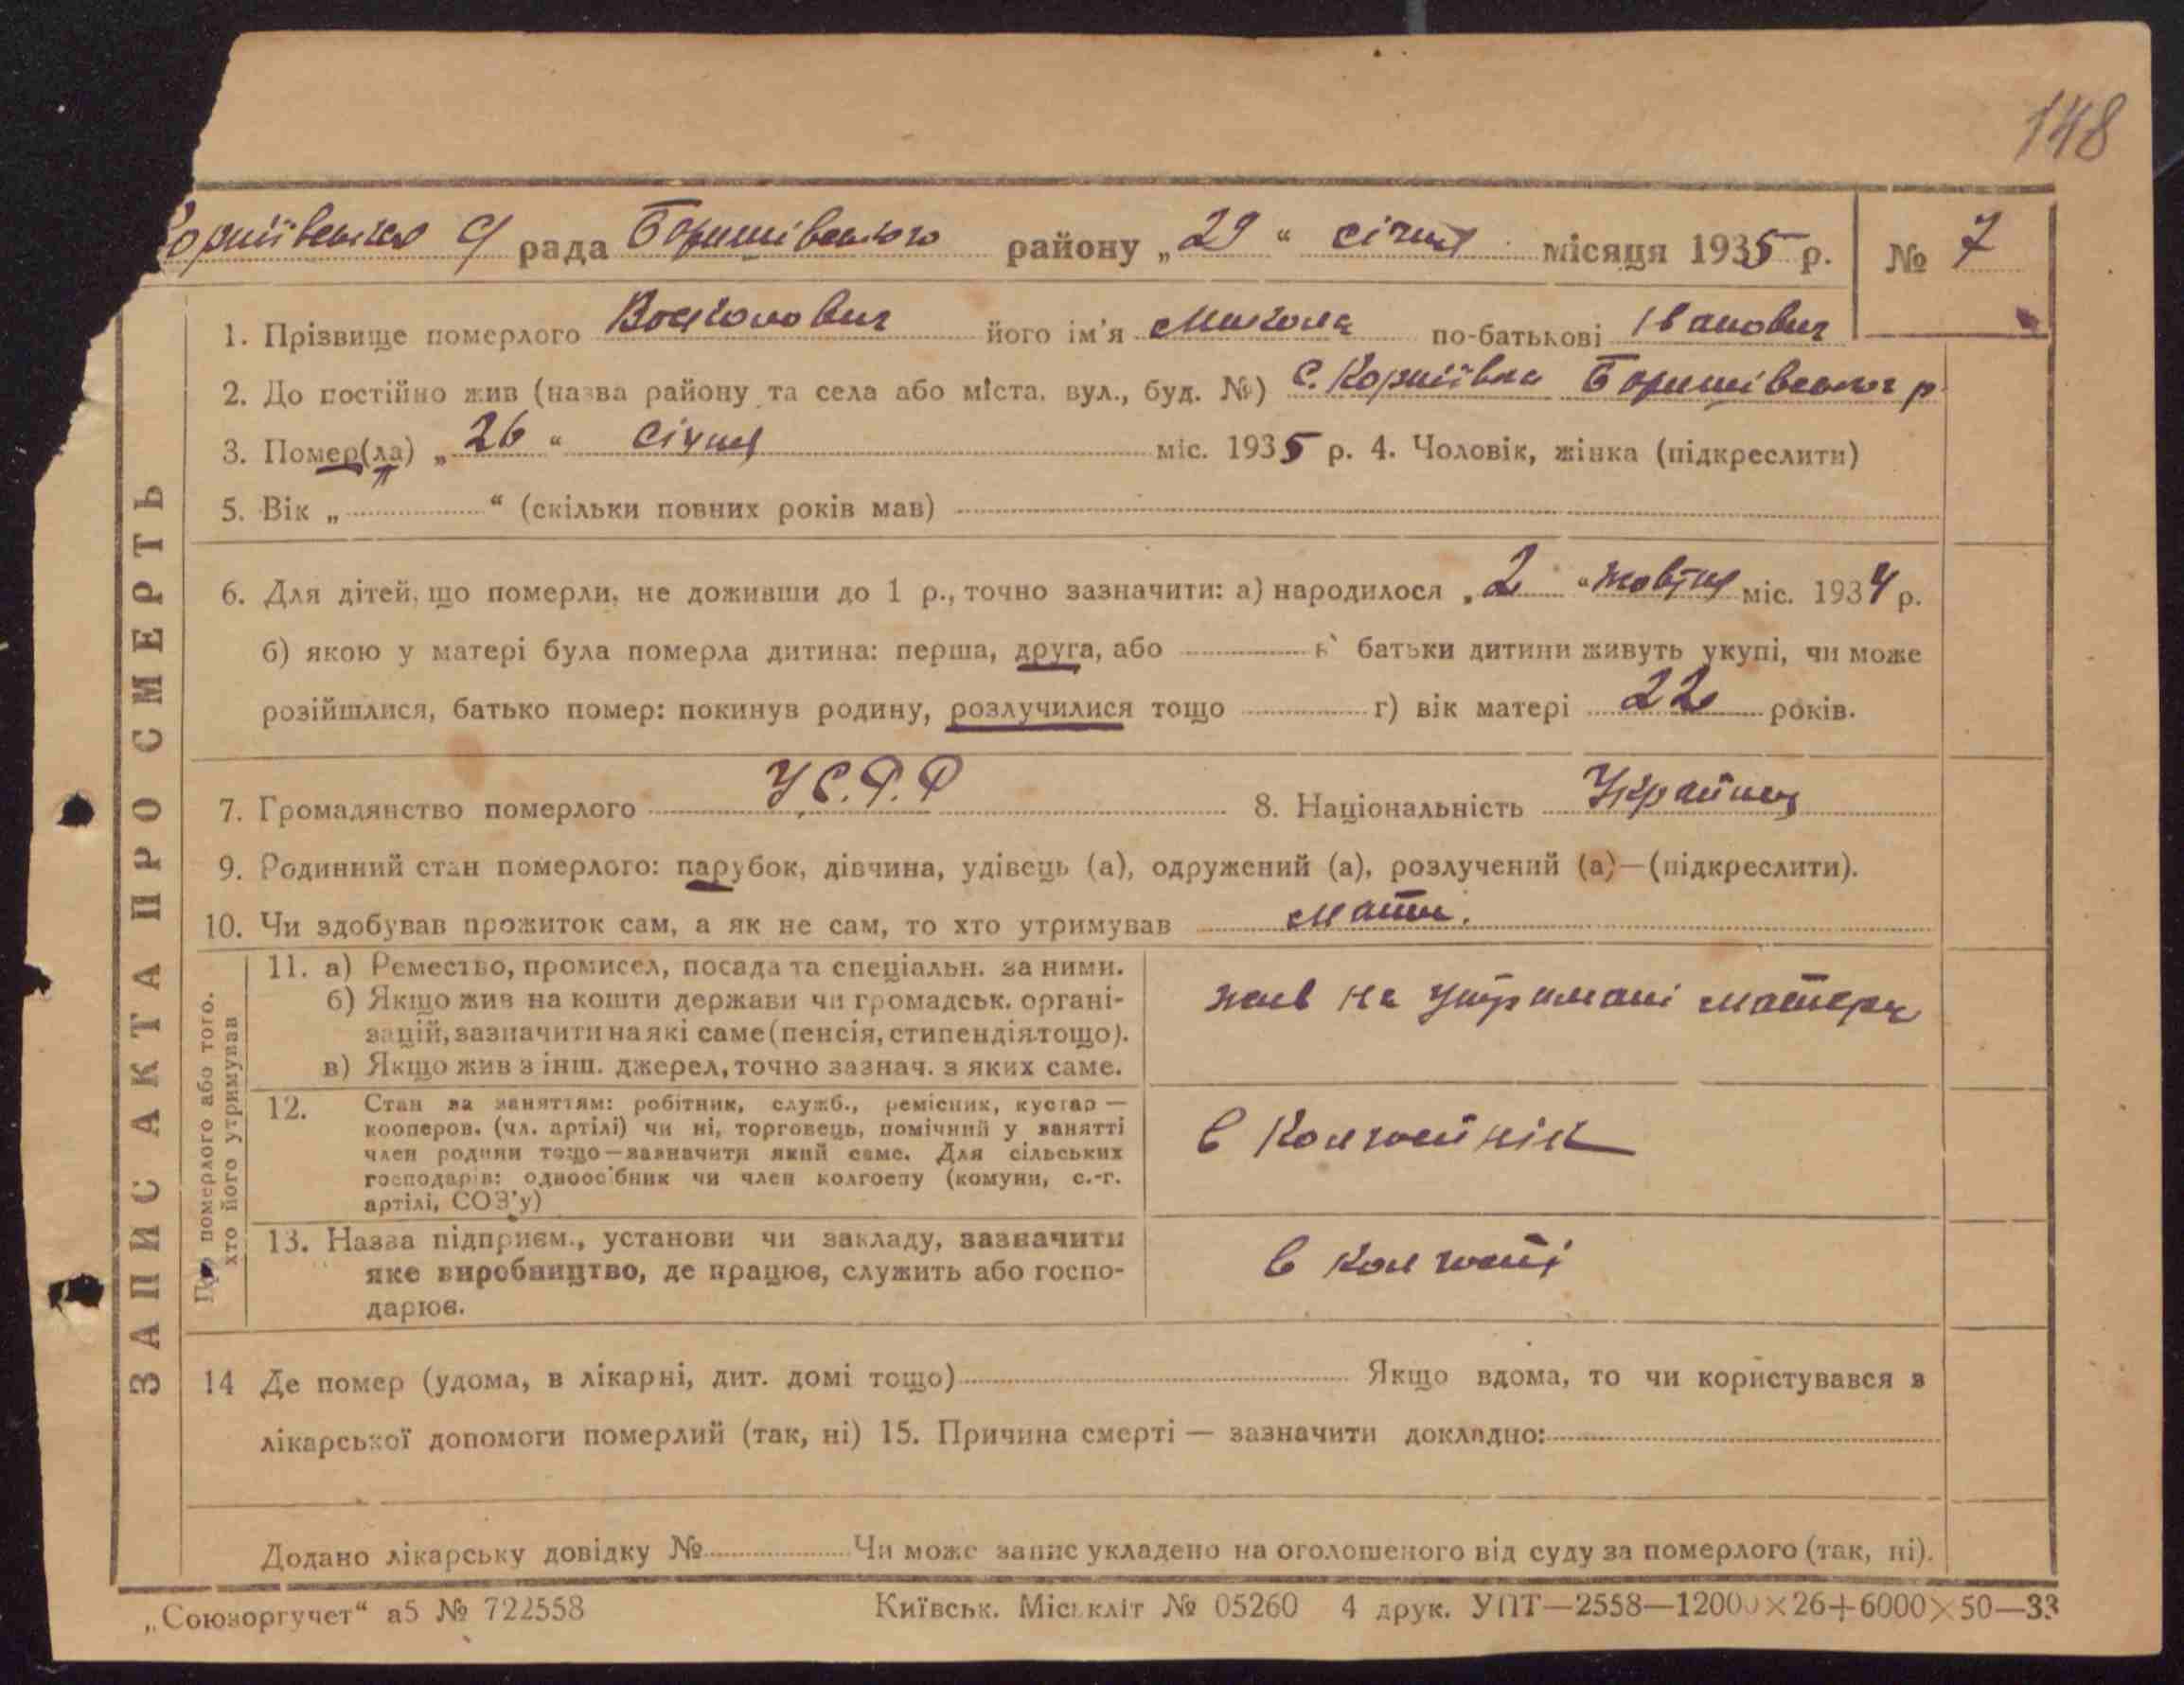 148
Корніївська С/ рада Баришівського району „29“ січня місяця 1935 р. № 7
1. Прізвище померлого його ім'я Микола по-батькові Іванович
2. До постійно жив (назва району та села або міста, вул., буд. №) С. Корніївка Баришівського р
3. Помер(ла) „26“ січня міс. 1935 р. 4. Чоловік, жінка (підкреслити)
5. Вік „ “ (скільки повних років мав)
6. Для дітей, що померли, не доживши до 1 р., точно зазначити: а) народилося „2“ жовтня міс. 1934 р.
б) якою у матері була померла дитина: перша, друга, або в) батьки дитини живуть укупі, чи може
розійшлися, батько помер: покинув родину, розлучилися тощо г) вік матері 22 років.
7. Громадянство померлого У.С.Р.Р 8. Національність Українец
9. Родинний стан померлого: парубок, дівчина, удівець (а), одружений (а), розлучений (а)—(підкреслити).
10. Чи здобував прожиток сам, а як не сам, то хто утримував мати.
11. а) Ремество, промисел, посада та спеціальн. за ними.
б) Якщо жив на кошти держави чи громадськ. органі-
зацій, зазначити на які саме (пенсія, стипендія тощо).
в) Якщо жив з інш. джерел, точно зазнач. з яких саме.
жив на утримані матери
12. Стан за заняттям: робітник, служб., ремісник, кустар —
кооперов. (чл. артілі) чи ні, торговець, помічний у занятті
член родини тощо—зазначити який саме. Для сільських
господарів: одноосібник чи член колгоспу (комуни, с.-г.
артілі, СОЗ'у)
13. Назва підприєм., установи чи закладу, зазначити
яке виробництво, де працює, служить або госпо-
дарює.
в колгоспі
14 Де помер (удома, в лікарні, дит. домі тощо) Якщо вдома, то чи користувався з
лікарської допомоги померлий (так, ні) 15. Причина смерті — зазначити докладно:
Додано лікарську довідку № Чи може запис укладено на оголошеного від суду за померлого (так, ні).
„Союзоргучет“ а5 № 722558 Київськ. Міськліт № 05260 4 друк. УПТ—2558—12000×26+6000×50—33
ЗАПИС АКТА ПРО СМЕРТЬ
Про померлого або того.
хто його утримував